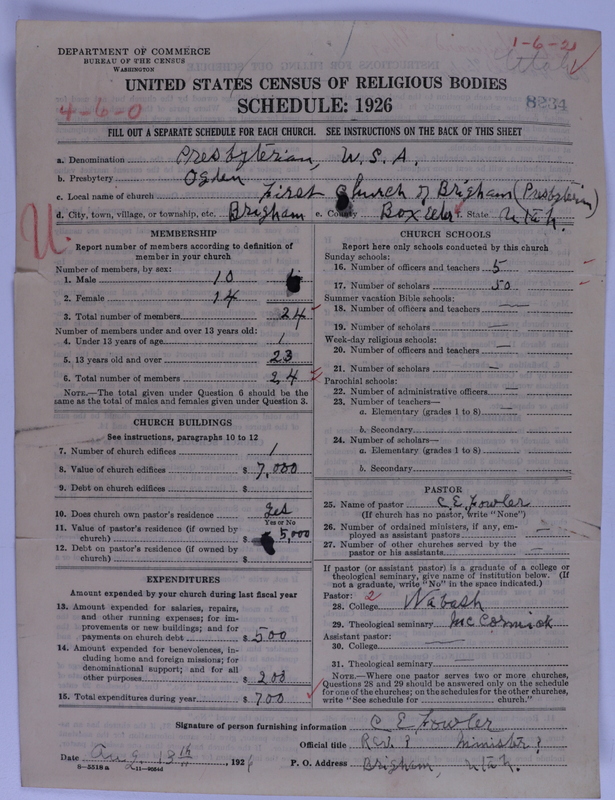 DEPARTMENT OF COMMERCE
BUREAU OF THE CENSUS
WASHINGTON
1-6-21
Utah
UNITED STATES CENSUS OF RELIGIOUS BODIES
SCHEDULE: 1926
4-6-0
8234
FILL OUT A SEPARATE SCHEDULE FOR EACH CHURCH. SEE INSTRUCTIONS ON THE BACK OF THIS SHEET
a. Denomination Presbyterian, U.S.A.
b. Presbytery Ogden
c. Local name of church First Church of Brigham (Presbyterian)
d. City, town, village, or township, etc. Brigham e. County Box Elder f. State Utah.
U.
MEMBERSHIP
Report number of members according to definition of
member in your church
Number of members, by sex:
1. Male 10
2. Female 14
3. Total number of members 24
Number of members under and over 13 years old:
4. Under 13 years of age 1
5. 13 years old and over 23
6. Total number of members 24
NOTE.—The total given under Question 6 should be the
same as the total of males and females given under Question 3.
CHURCH BUILDINGS
See instructions, paragraphs 10 to 12
7. Number of church edifices 1
8. Value of church edifices $ 7,000
9. Debt on church edifices $
10. Does church own pastor's residence yes
Yes or No
11. Value of pastor's residence (if owned by
church) $ 5,000
12. Debt on pastor's residence (if owned by
church) $
EXPENDITURES
Amount expended by your church during last fiscal year
13. Amount expended for salaries, repairs,
and other running expenses; for im-
provements or new buildings; and for
payments on church debt $ 500
14. Amount expended for benevolences, in-
cluding home and foreign missions; for
denominational support; and for all
other purposes $ 200
15. Total expenditures during year $ 700
CHURCH SCHOOLS
Report here only schools conducted by this church
Sunday schools:
16. Number of officers and teachers 5
17. Number of scholars 50
Summer vacation Bible schools:
18. Number of officers and teachers —
19. Number of scholars —
Week-day religious schools:
20. Number of officers and teachers —
21. Number of scholars —
Parochial schools:
22. Number of administrative officers —
23. Number of teachers—
a. Elementary (grades 1 to 8) —
b. Secondary
24. Number of scholars—
a. Elementary (grades 1 to 8) —
b. Secondary
PASTOR
25. Name of pastor C E. Fowler
(If church has no pastor, write "None")
26. Number of ordained ministers, if any, em-
ployed as assistant pastors —
27. Number of other churches served by the
pastor or his assistants —
If pastor (or assistant pastor) is a graduate of a college or
theological seminary, give name of institution below. (If
not a graduate, write "No" in the space indicated.)
Pastor: 2
28. College Wabash
29. Theological seminary McCormick
Assistant pastor:
30. College —
31. Theological seminary —
NOTE.—Where one pastor serves two or more churches,
Questions 28 and 29 should be answered only on the schedule
for one of the churches; on the schedules for the other churches,
write "See schedule for church."
Signature of person furnishing information C E Fowler
Official title Rev. ? Minister ?
Date Aug. 13th, 1926 P. O. Address Brigham, Utah.
8—5518a 11—9054d